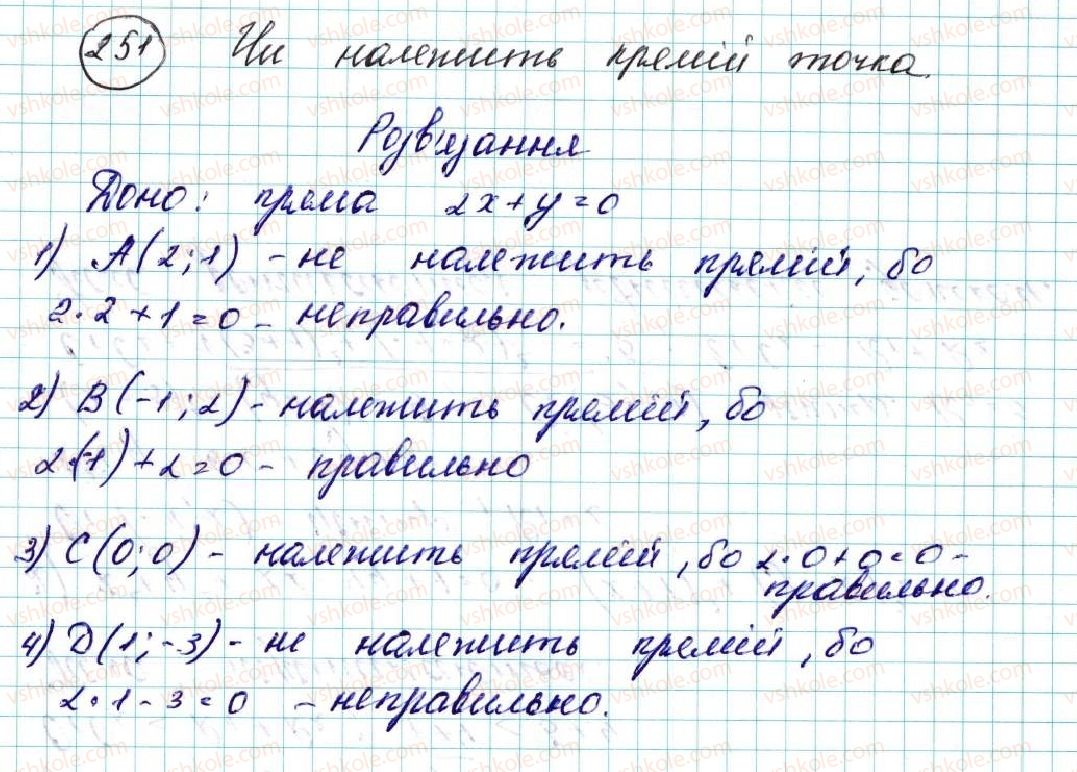 251 Чи належить прямій точка.
Розв'язання
Дано: пряма 2x+y=0
1) A(2;1) - не належить прямій, бо
2·2+1=0 - неправильно.
2) B(-1;2) - належить прямій, бо
2·(-1)+2=0 - правильно
3) C(0;0) - належить прямій, бо 2·0+0=0 -
правильно.
4) D(1;-3) - не належить прямій, бо
2·1-3=0 - неправильно.